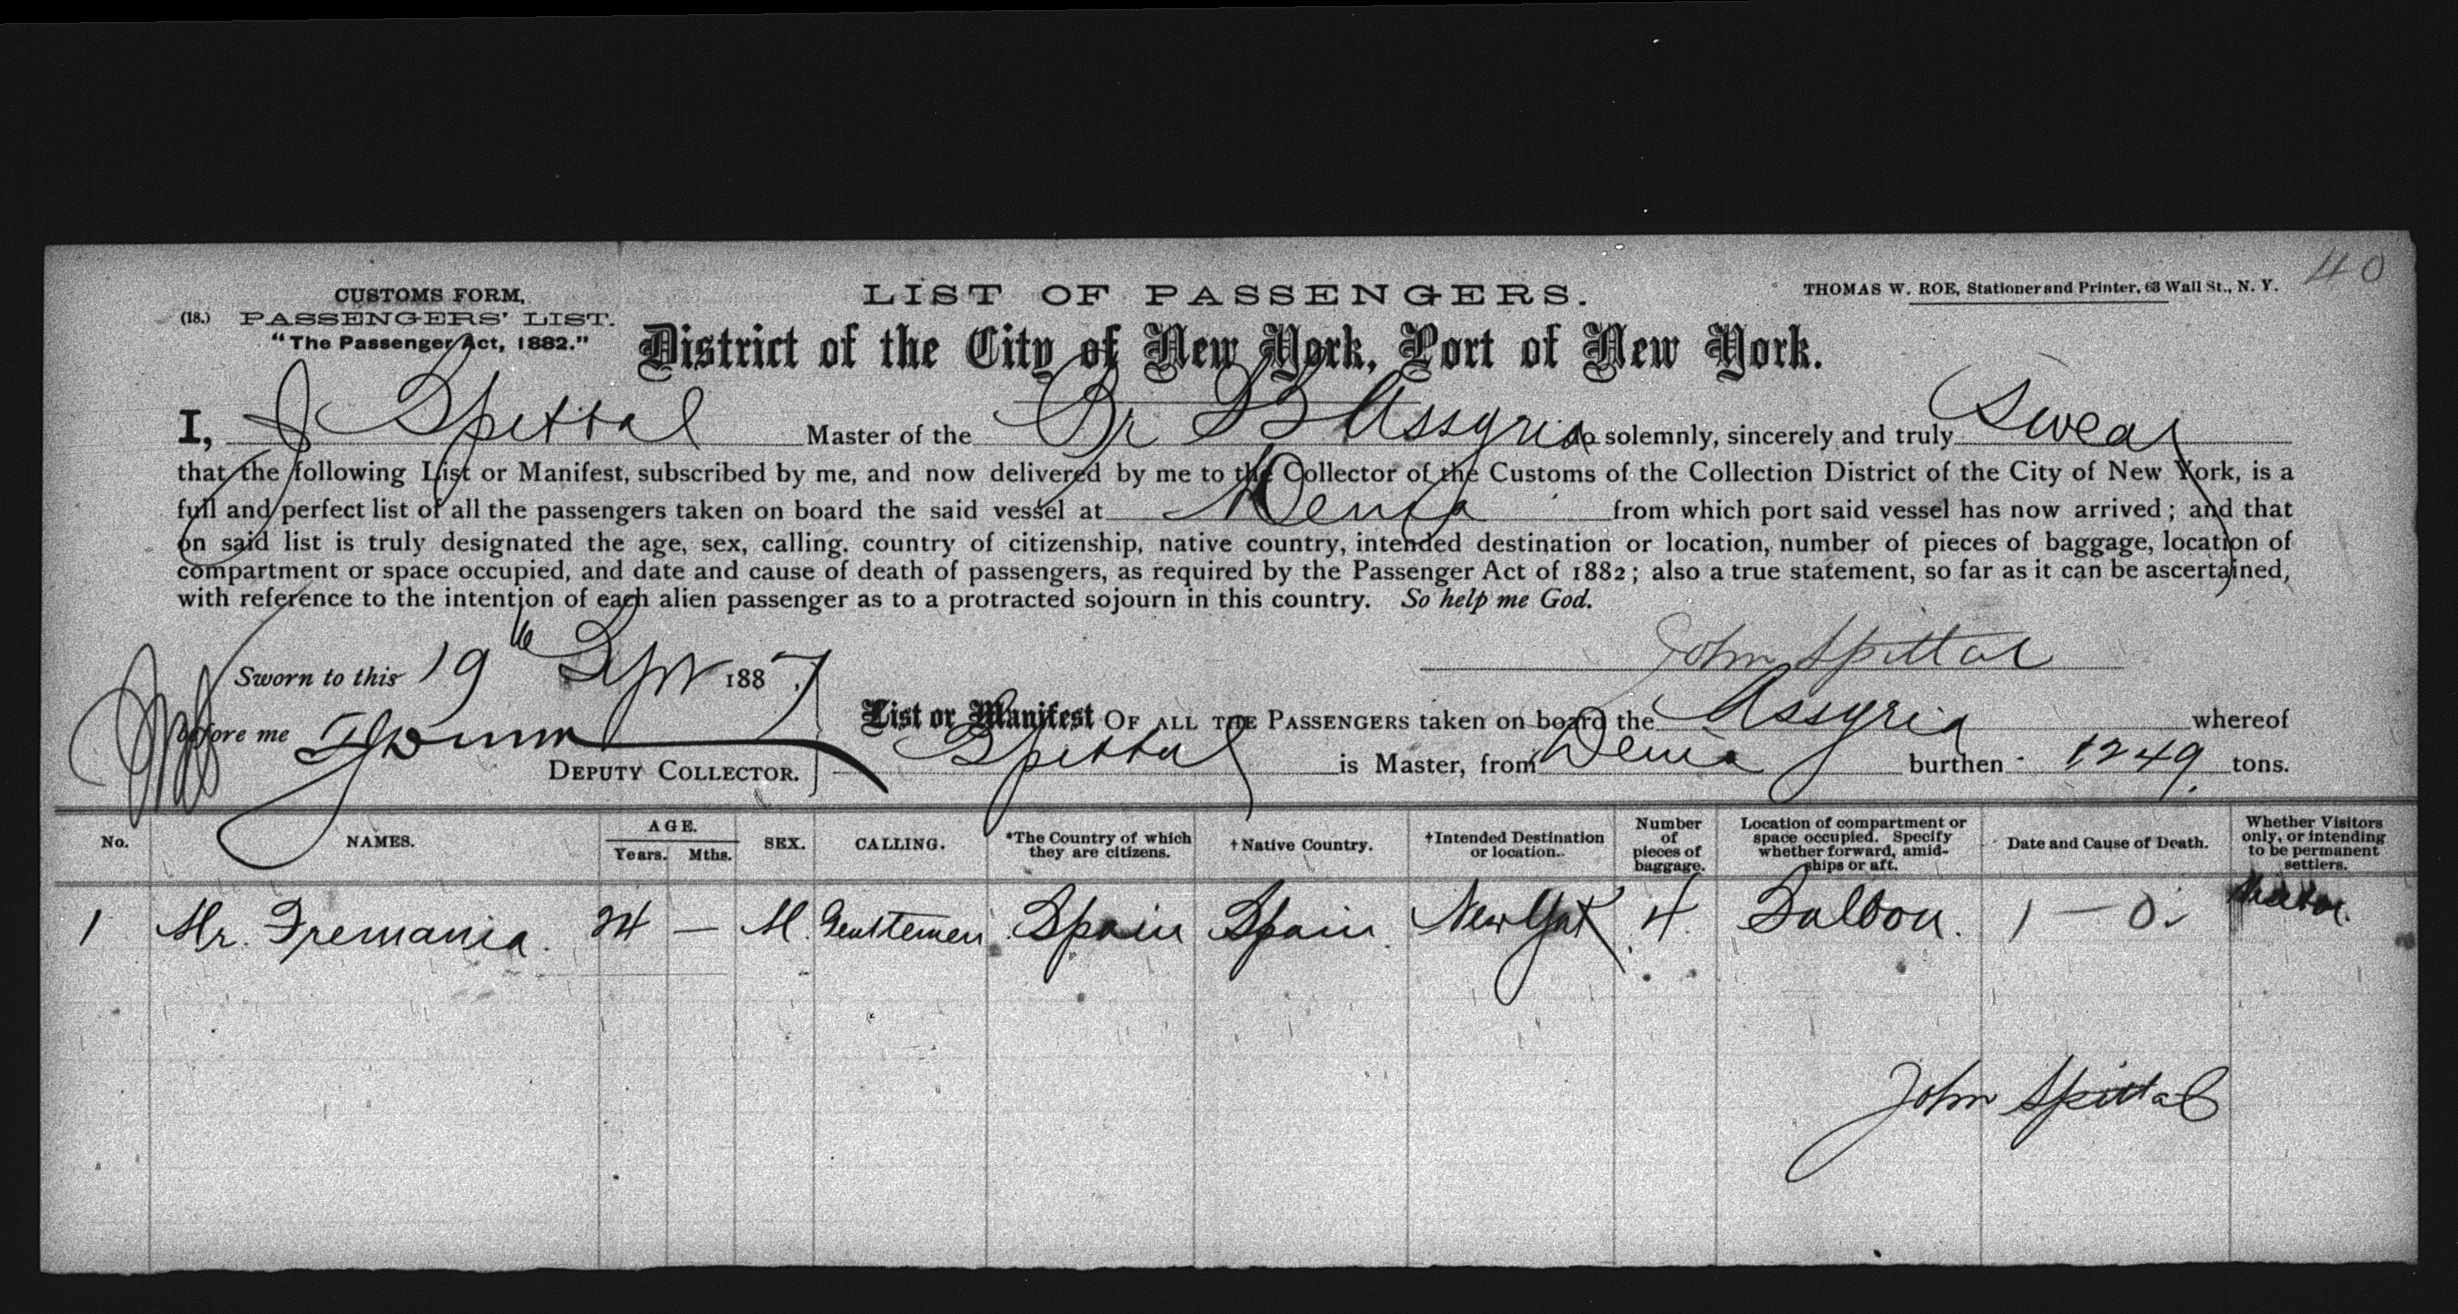 40
CUSTOMS FORM,
(18.) PASSENGERS' LIST.
"The Passenger Act, 1882."
LIST OF PASSENGERS.
THOMAS W. ROE, Stationer and Printer, 63 Wall St., N. Y.
District of the City of New York, Port of New York.
I, J Spittal Master of the Br SS Assyria do solemnly, sincerely and truly Swear
that the following List or Manifest, subscribed by me, and now delivered by me to the Collector of the Customs of the Collection District of the City of New York, is a
full and perfect list of all the passengers taken on board the said vessel at Denia from which port said vessel has now arrived; and that
on said list is truly designated the age, sex, calling. country of citizenship, native country, intended destination or location, number of pieces of baggage, location of
compartment or space occupied, and date and cause of death of passengers, as required by the Passenger Act of 1882; also a true statement, so far as it can be ascertained,
with reference to the intention of each alien passenger as to a protracted sojourn in this country. So help me God.
John Spittal
Sworn to this 19th Sept 1887.
before me
DEPUTY COLLECTOR.
List or Manifest OF ALL THE PASSENGERS taken on board the Assyria whereof
Spittal is Master, from Denia burthen 1249 tons.
No. NAMES. AGE. Years. Mths. SEX. CALLING. *The Country of which they are citizens. †Native Country. †Intended Destination or location. Number of pieces of baggage. Location of compartment or space occupied. Specify whether forward, amidships or aft. Date and Cause of Death. Whether Visitors only, or intending to be permanent settlers.
1 Mr. Fremania. 24 — M. Gentlemen Spain Spain. New York 4. Saloon. 1 — 0.
John Spittal